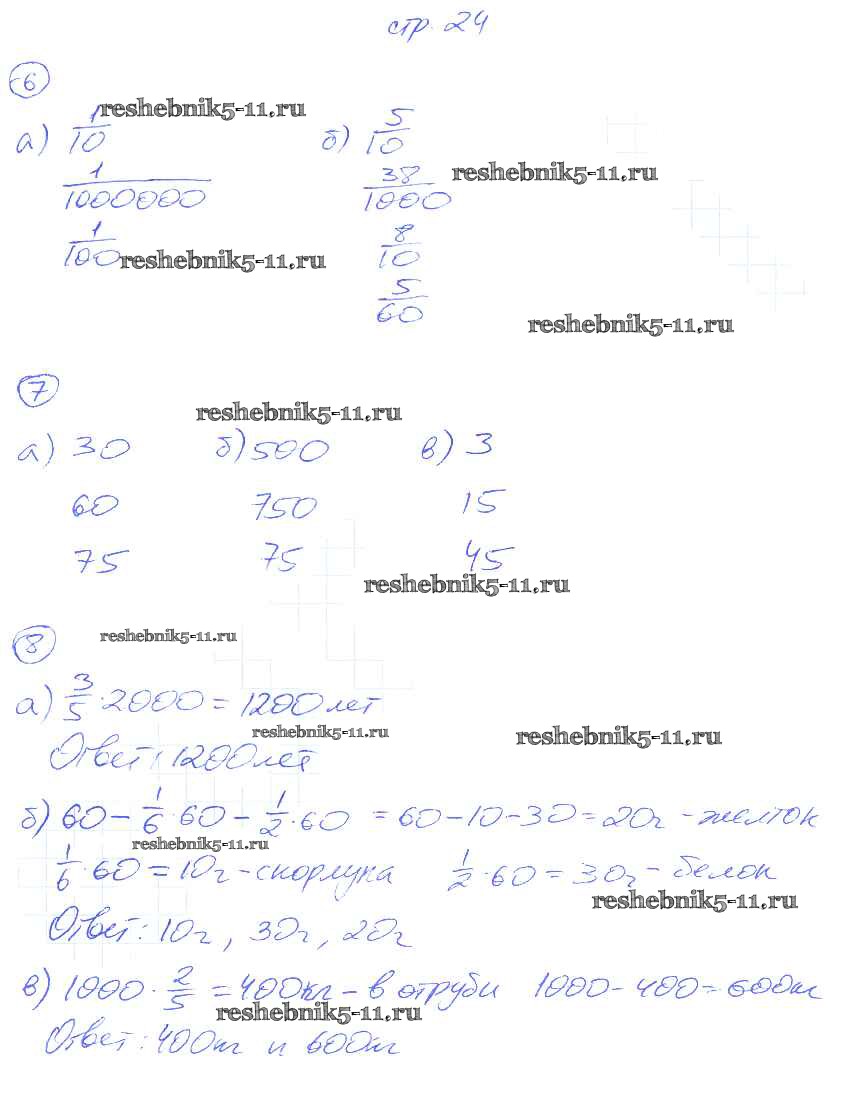 стр. 24
6
reshebnik5-11.ru
а) 1/10 б) 5/10
1/1000000 38/1000
reshebnik5-11.ru
1/100 8/10
reshebnik5-11.ru
5/60
reshebnik5-11.ru
7
reshebnik5-11.ru
а) 30 б) 500 в) 3
60 750 15
75 75 45
reshebnik5-11.ru
8
reshebnik5-11.ru
а) 3/5 · 2000 = 1200 лет
reshebnik5-11.ru
reshebnik5-11.ru
Ответ: 1200 лет
б) 60 – 1/6 · 60 – 1/2 · 60 = 60 – 10 – 30 = 20г – желток
reshebnik5-11.ru
1/6 · 60 = 10г – скорлупа 1/2 · 60 = 30г – белок
reshebnik5-11.ru
Ответ: 10г, 30г, 20г
в) 1000 · 2/5 = 400кг – в отруби 1000 – 400 = 600кг
reshebnik5-11.ru
Ответ: 400кг и 600кг